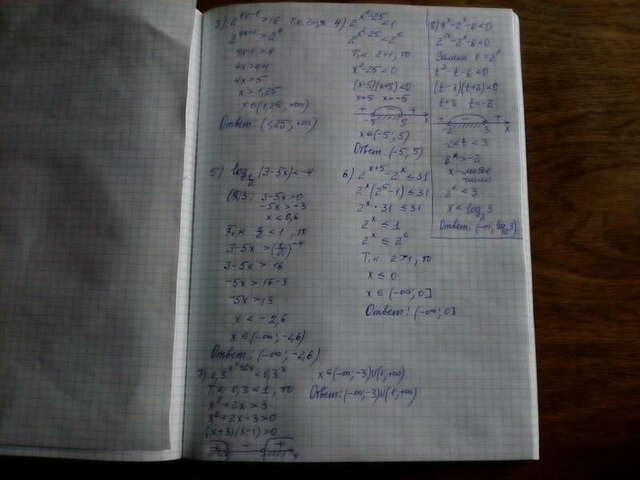 3) 2^(4x-1) > 16 Т.к. 2>1, то
2^(4x-1) > 2^4
4x-1 > 4
4x > 4+1
4x > 5
x > 1,25
x ∈ (1,25; +∞)
Ответ: (1,25; +∞)
4) 2^(x²-25) < 1
2^(x²-25) < 2^0
Т.к. 2>1, то
x²-25 < 0
(x-5)(x+5) < 0
x=5 x=-5
+ - +
-5 5 x
x ∈ (-5; 5)
Ответ: (-5; 5)
8) 4^x - 2^x - 6 < 0
2^2x - 2^x - 6 < 0
Замена t = 2^x
t² - t - 6 < 0
(t-3)(t+2) < 0
t=3 t=-2
+ - +
-2 3 x
-2 < t < 3
2^x > -2
x - любое
число
2^x < 3
x < log₂3
Ответ: (-∞; log₂3)
5) log_(1/2) (3-5x) < -4
ОДЗ: 3-5x > 0
-5x > -3
x < 0,6
Т.к. 1/2 < 1, то
3-5x > (1/2)^(-4)
3-5x > 16
-5x > 16-3
-5x > 13
x < -2,6
x ∈ (-∞; -2,6)
Ответ: (-∞; -2,6)
6) 2^(x+5) - 2^x ≤ 31
2^x (2^5 - 1) ≤ 31
2^x · 31 ≤ 31
2^x ≤ 1
2^x ≤ 2^0
Т.к. 2>1, то
x ≤ 0
x ∈ (-∞; 0]
Ответ: (-∞; 0]
7) 0,3^(x²+2x) < 0,3^3
Т.к. 0,3 < 1, то
x²+2x > 3
x²+2x-3 > 0
(x+3)(x-1) > 0
+ - +
x ∈ (-∞; -3)∪(1; +∞)
Ответ: (-∞; -3)∪(1; +∞)